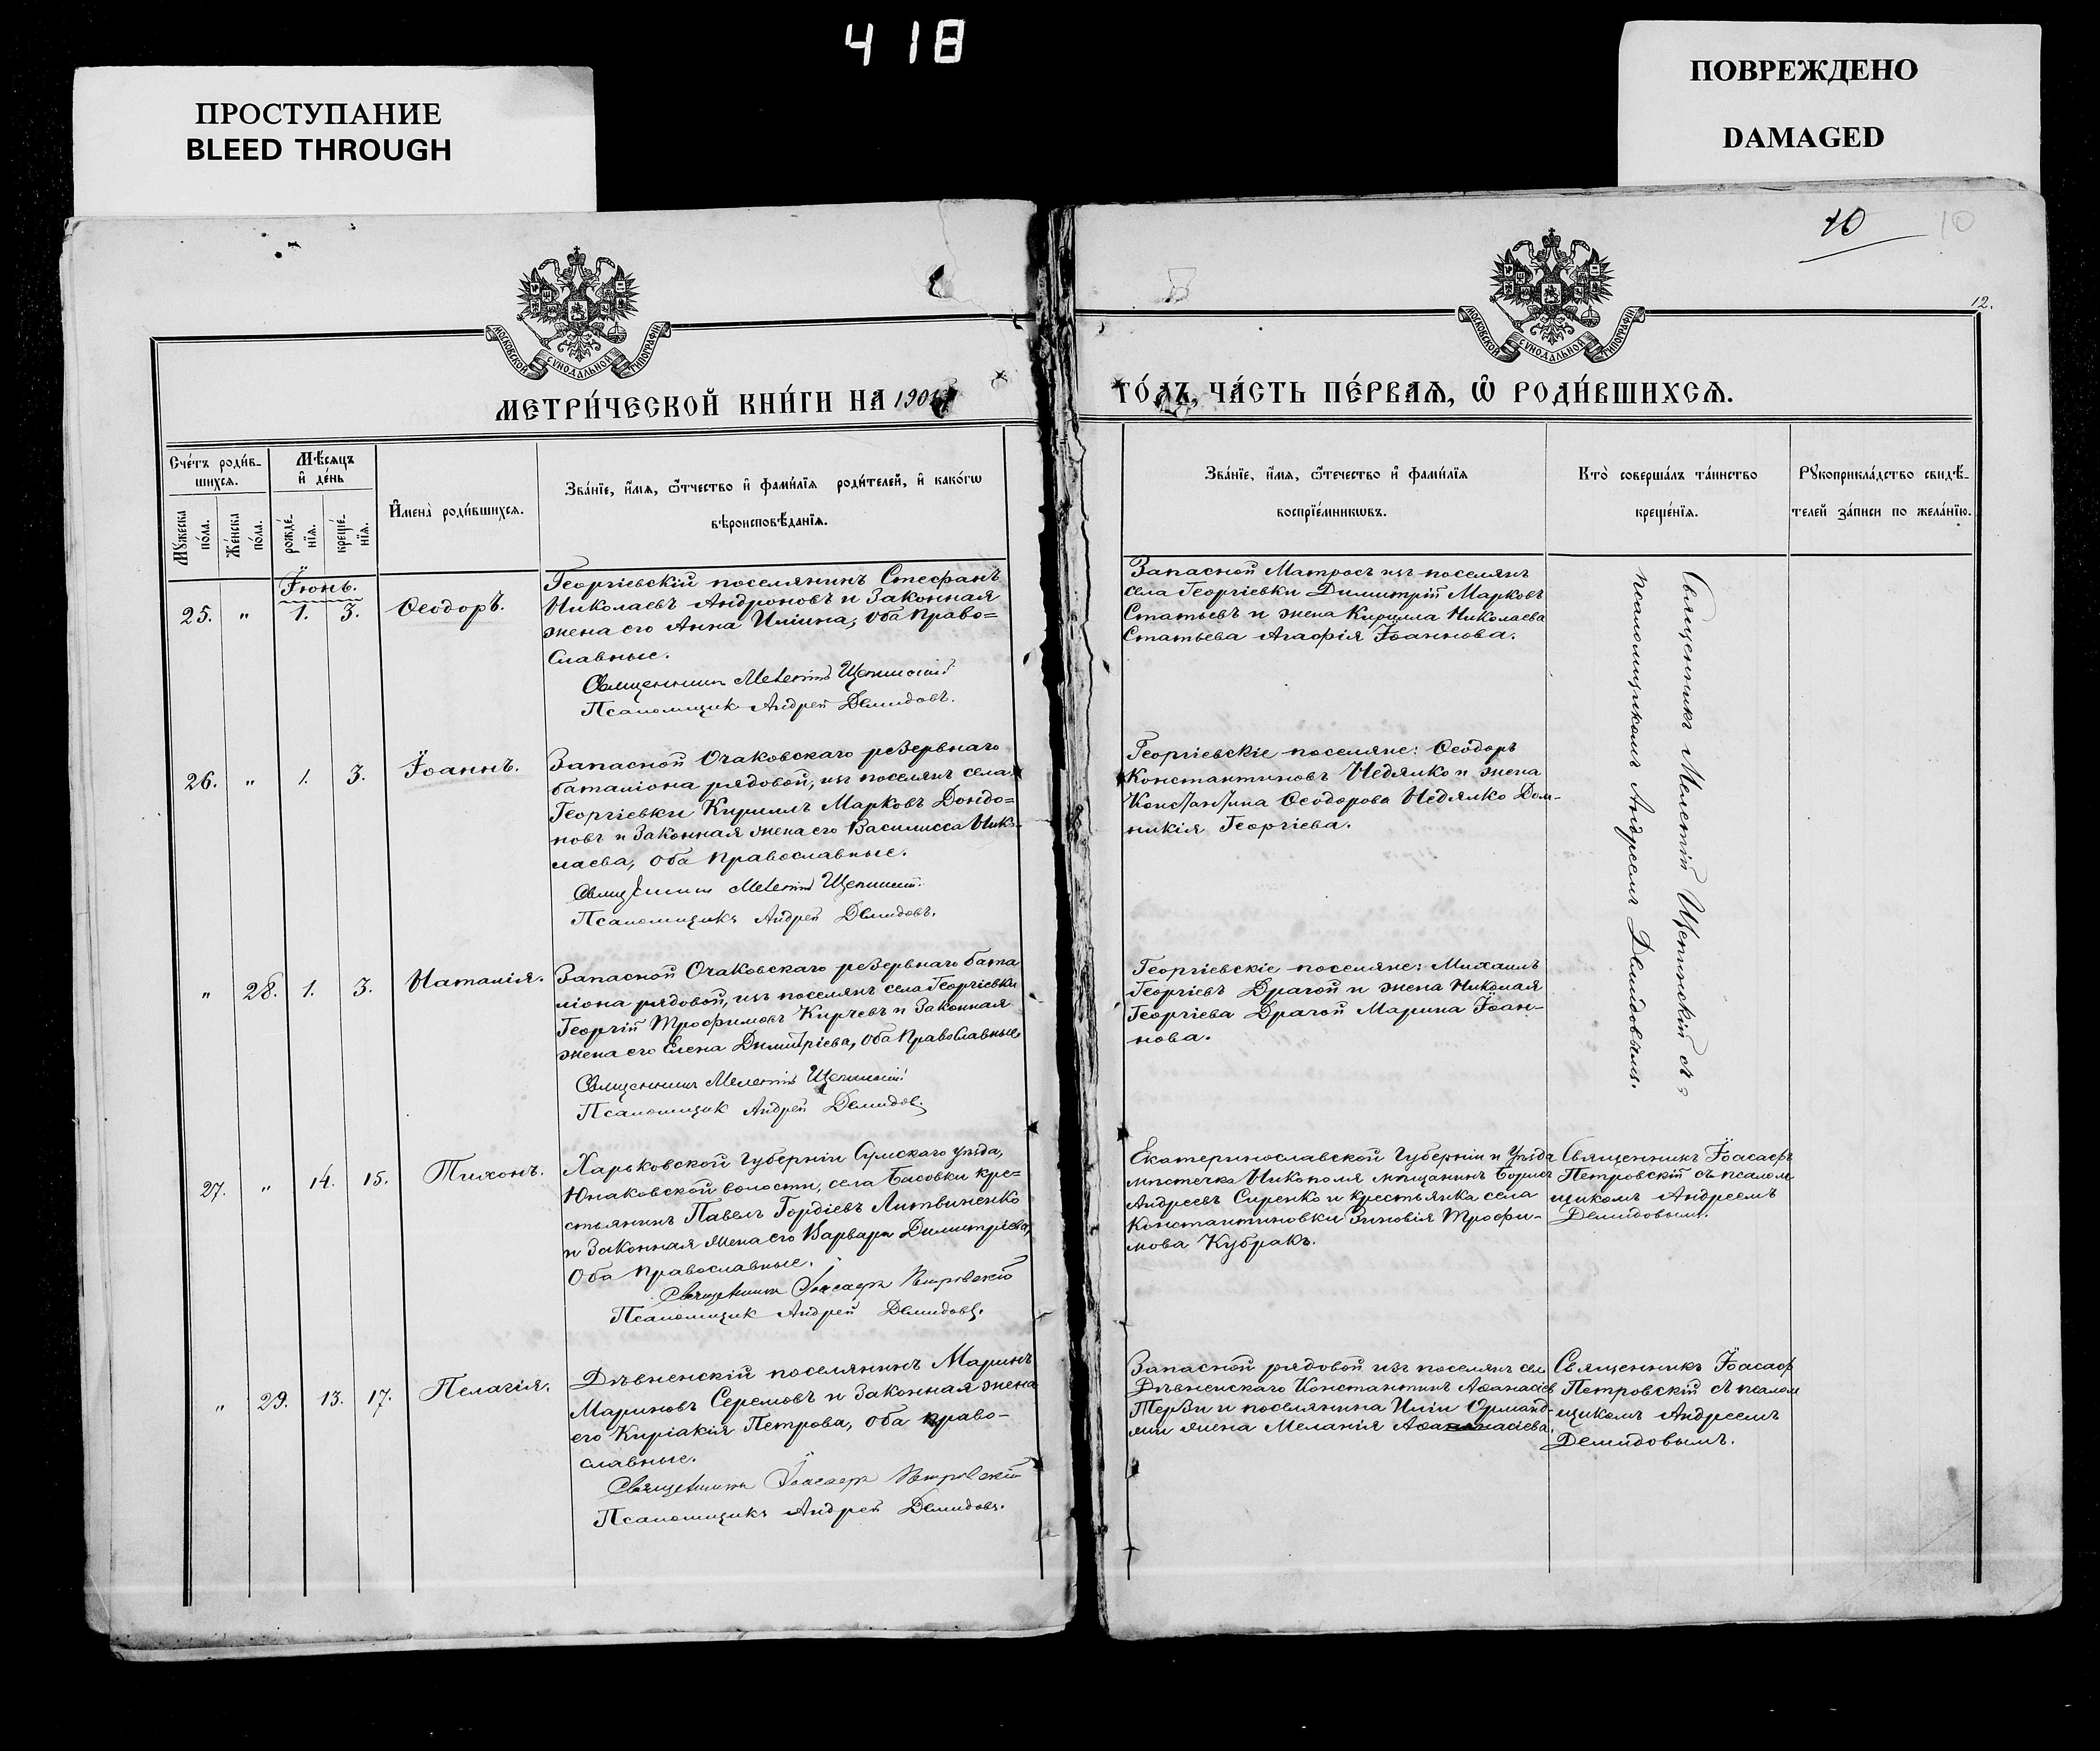 418
ПРОСТУПАНИЕ
BLEED THROUGH
ПОВРЕЖДЕНО
DAMAGED
10
10
12.
МОСКОВСКОЙ СѴНОДАЛЬНОЙ ТИПОГРАФІИ
МОСКОВСКОЙ СѴНОДАЛЬНОЙ ТИПОГРАФІИ
МЕТРИ́ЧЕСКОЙ КНИ́ГИ НА 190
ГО́ДЪ, ЧА́СТЬ ПЕ́РВАѦ, Ѡ҆ РОДИ́ВШИХСѦ.
Сче́тъ роди́в-
шихсѧ.
Мѣ́сѧцъ
и҆ де́нь
Мꙋ́жеска
по́ла.
Же́нска
по́ла.
рожде́-
нїѧ.
креще́-
нїѧ.
И҆мена̀ роди́вшихсѧ.
Зва́нїе, и҆́мѧ, ѻ҆́тчество и҆ фами́лїѧ роди́телей, и҆ како́гѡ
вѣроисповѣ́данїѧ.
Зва́нїе, и҆́мѧ, ѻ҆те́чество и҆ фами́лїѧ
воспрїе́мникѡвъ.
Кто̀ соверша́лъ та́инство
креще́нїѧ.
Рꙋкоприкла́дство свидѣ́-
телей за́писи по жела́нїю.
Іюнь.
25. " 1. 3. Ѳеодоръ.
Георгіевскій поселянинъ Стефанъ
Николаевъ Андроновъ и законная
жена его Анна Иліина, оба право=
славные.
Священникъ Мелетій Щепинскій
Псаломщик Андрей Демидовъ.
Запасной Матросъ изъ поселянъ
села Георгіевки Димитрій Марковъ
Статьевъ и жена Кирилла Николаева
Статьева Агафія Іоаннова.
Священникъ Мелетій Щепинскій съ
псаломщикомъ Андреемъ Демидовымъ.
26. " 1. 3. Іоаннъ.
Запасной Очаковскаго резервнаго
баталіона рядовой, изъ поселянъ села
Георгіевки Кириллъ Марковъ Дондо=
новъ и законная жена его Василисса Нико-
лаева, оба православные.
Священникъ Мелетій Щепинскій.
Псаломщикъ Андрей Демидовъ.
Георгіевскіе поселяне: Ѳеодоръ
Константиновъ Недялко и жена
Константина Ѳеодорова Недялко Дом-
никія Георгіева.
" 28. 1. 3. Наталія.
Запасной Очаковскаго резервнаго бата
ліона рядовой, изъ поселянъ села Георгіевки
Георгій Трофимовъ Кирчевъ и законная
жена его Елена Димитріева, оба православные
Священникъ Мелетій Щепинскій
Псаломщик Андрей Демидов.
Георгіевскіе поселяне: Михаилъ
Георгіевъ Драгой и жена Николая
Георгіева Драгой Марина Іоан-
нова.
27. " 14. 15. Тихонъ.
Харьковской губерніи Сумскаго уѣзда,
Юнаковской волости, села Басовки кре=
стьянинъ Павелъ Гордіевъ Литвиненко
и законная жена его Варвара Димитріева,
оба православные.
Священникъ Іоасафъ Петровскій
Псаломщик Андрей Демидовъ.
Екатеринославской губерніи и уѣзда
мѣстечка Никополя мѣщанинъ Борисъ
Андреевъ Сиренко и крестьянка села
Константиновки Зиновія Трофи-
мова Кубракъ.
Священникъ Іоасафъ
Петровскій съ псалом
щикомъ Андреемъ
Демидовымъ.
" 29. 13. 17. Пелагія.
Дѣвненскій поселянинъ Маринъ
Мариновъ Серемовъ и законная жена
его Киріакія Петрова, оба право-
славные.
Священникъ Іоасафъ Петровскій
Псаломщикъ Андрей Демидовъ.
Запасной рядовой изъ поселянъ сел.
Дѣвненскаго Константинъ Аѳанасіев
Терзи и поселянина Иліи Орманд-
жи жена Меланія Аѳанасіева.
Священникъ Іоасаф
Петровскій съ псалом
щикомъ Андреемъ
Демидовымъ.